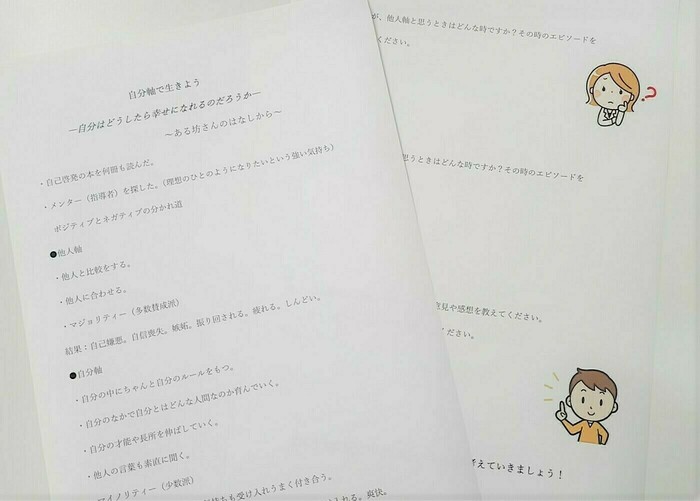 自分軸で生きよう
―自分はどうしたら幸せになれるのだろうか―
～ある坊さんのはなしから～
・自己啓発の本を何冊も読んだ。
・メンター（指導者）を探した。（理想のひとのようになりたいという強い気持ち）
ポジティブとネガティブの分かれ道
●他人軸
・他人と比較をする。
・他人に合わせる。
・マジョリティー（多数賛成派）
結果：自己嫌悪。自信喪失。嫉妬。振り回される。疲れる。しんどい。
●自分軸
・自分の中にちゃんと自分のルールをもつ。
・自分のなかで自分とはどんな人間なのか育んでいく。
・自分の才能や長所を伸ばしていく。
・他人の言葉も素直に聞く。
マイノリティー（少数派）
も受け入れうまく付き合う。
れる。爽快。
が、他人軸と思うときはどんな時ですか？その時のエピソードを
ください。
?
思うときはどんな時ですか？その時のエピソードを
意見や感想を教えてください。
ください。
考えていきましょう！